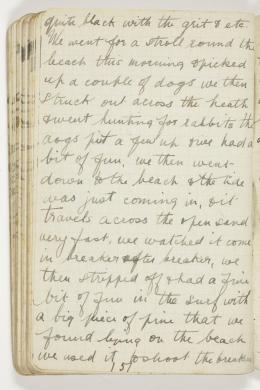 quite black with the grit & etc
We went for a stroll round the
beach this morning & picked
up a couple of dogs we then
struck out across the heath
& went hunting for rabbits the
dogs put a few up & we had a
bit of fun, we then went
down to the beach & the tide
was just coming in, & it
travels across the open sand
very fast, we watched it come
in breaker after breaker, we
then stripped off & had a fine
bit of fun in the surf with
a big piece of pine that we
found lying on the beach
we used it to shoot the breakers
15